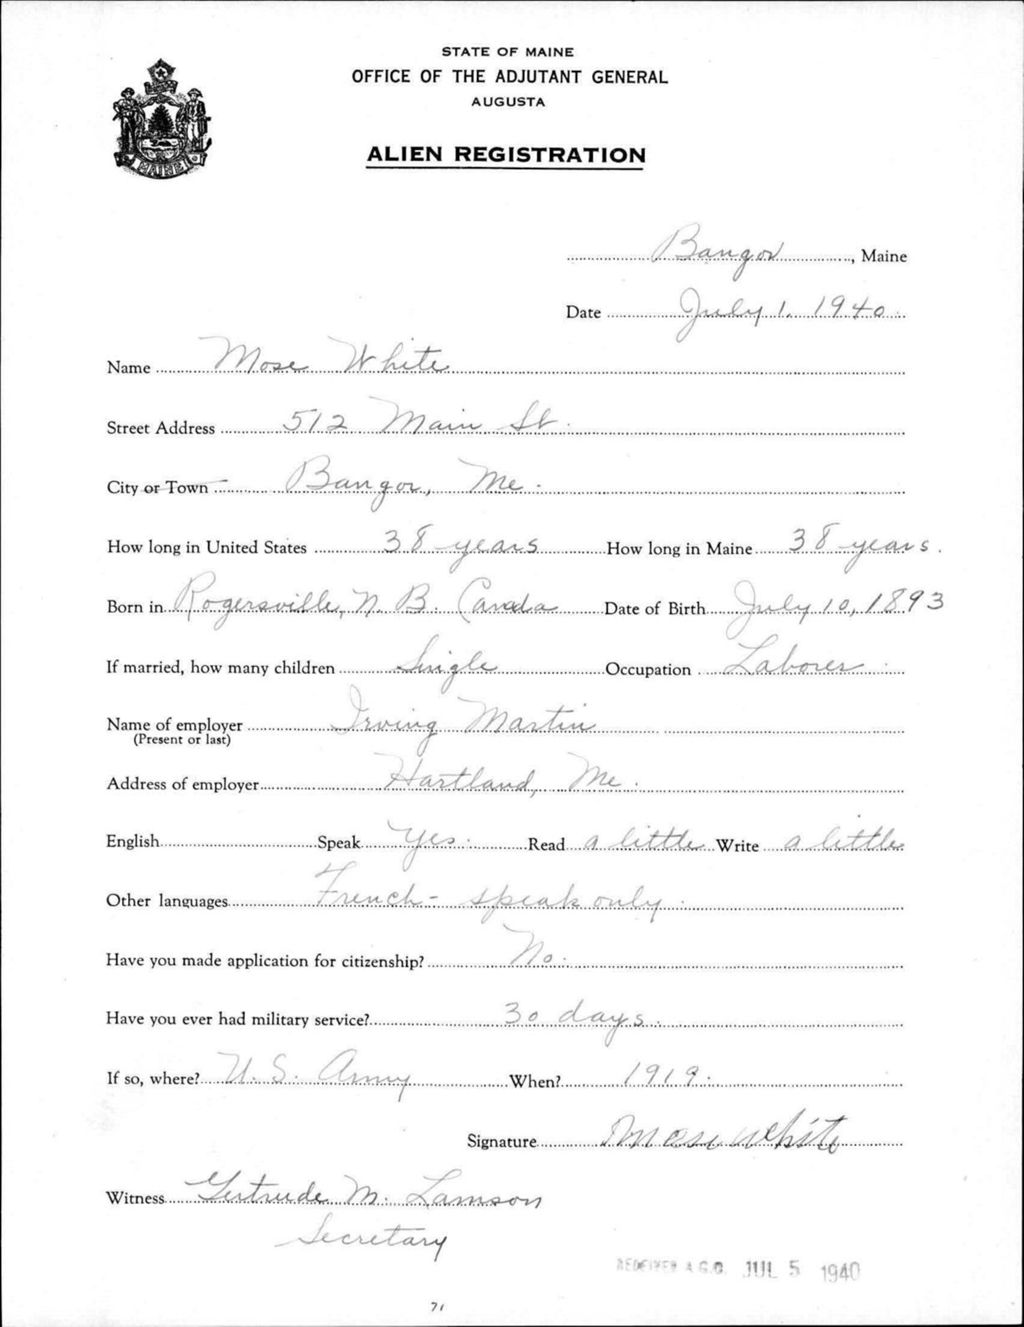 STATE OF MAINE
OFFICE OF THE ADJUTANT GENERAL
AUGUSTA
ALIEN REGISTRATION
MAINE
Bangor, Maine
Date July 1, 1940.
Name Mose White
Street Address 512 Main St.
City or Town Bangor, Me.
How long in United States 38 years How long in Maine 38 years.
Born in Rogersville, N. B. Canada Date of Birth July 10, 1893
If married, how many children Single Occupation Laborer
Name of employer Irving Martin
(Present or last)
Address of employer Hartland, Me.
English Speak Yes. Read a little Write a little
Other languages French - speak only.
Have you made application for citizenship? No.
Have you ever had military service? 30 days.
If so, where? U. S. Army When? 1919.
Signature Mose White
Witness Gertrude M. Lamson
Secretary
RECEIVED A.G.O. JUL 5 1940
71